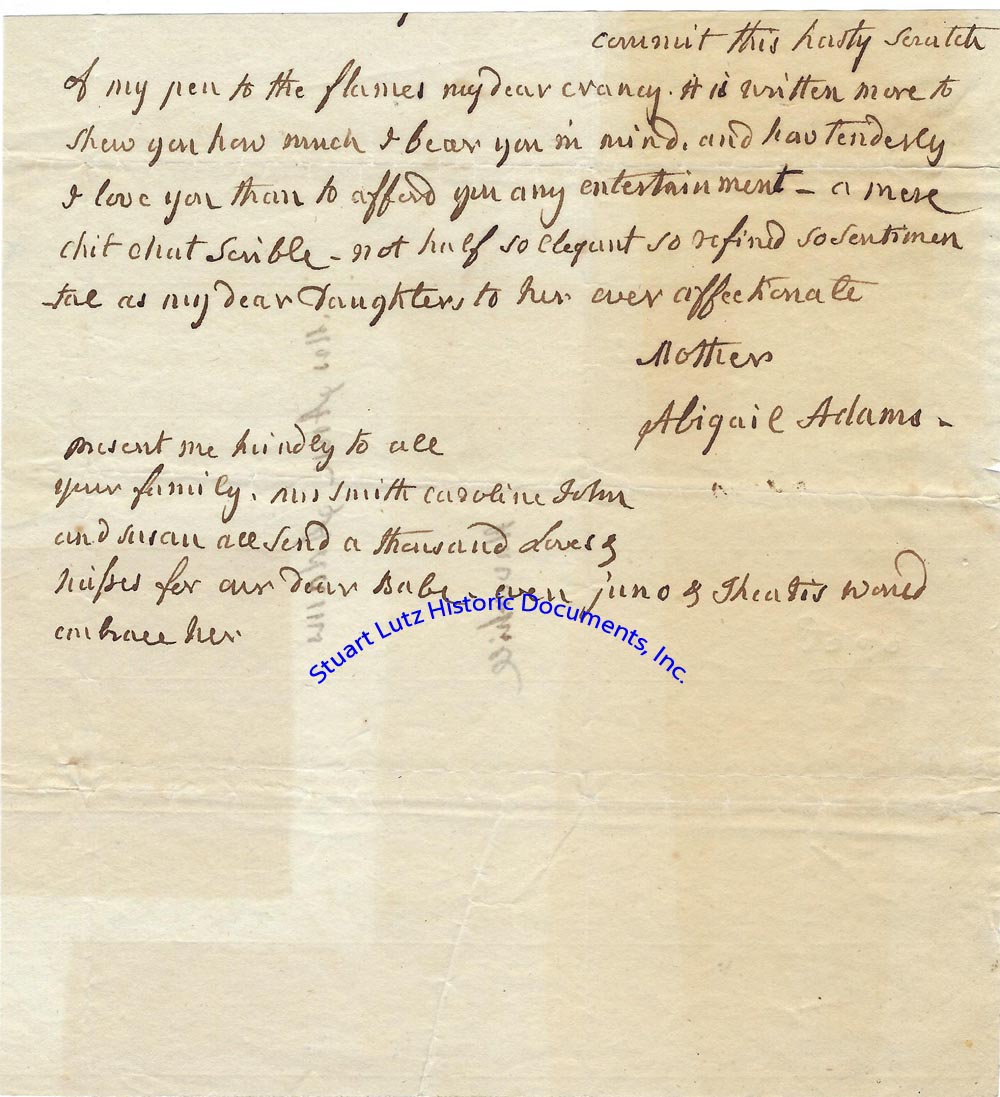 commit this hasty scratch
of my pen to the flames my dear crancy. it is written more to
shew you how much I bear you in mind, and how tenderly
I love you than to afford you any entertainment - a mere
chit chat scrible - not half so elegant so refined so sentimen
-tal as my dear Daughters to her ever affectionate
Mother
Abigail Adams -
present me kindly to all
your family. mrs smith caroline John
and susan all send a thousand Loves &
kisses for our dear Babe. even juno & Theatis would
embrace her
Stuart Lutz Historic Documents, Inc.